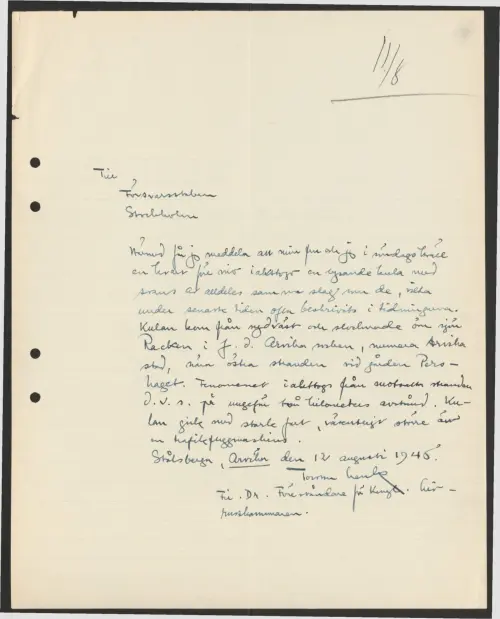 11/8
Till
Försvarsstaben
Stockholm
Härmed får jag meddela att min fru och jag i söndags kväll
en kvart före nio iakttogo en lysande kula med
svans av alldeles samma slag som de, vilka
under senaste tiden ofta beskrivits i tidningarna.
Kulan kom från sydväst och slocknade över sjön
Racken i f. d. Arvika socken, numera Arvika
stad, nära östra stranden vid gården Pers-
haget. Fenomenet iakttogs från motsatta stranden
d. v. s. på ungefär två kilometers avstånd. Ku-
lan gick med stark fart, väsentligt större än
en trafikflygmaskins.
Stålsberga, Arvika den 12 augusti 1946.
Fil. Dr. Föreståndare för Kungl. Liv-
rustkammaren.